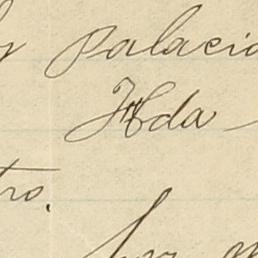 y Palacio
Hda
tro.